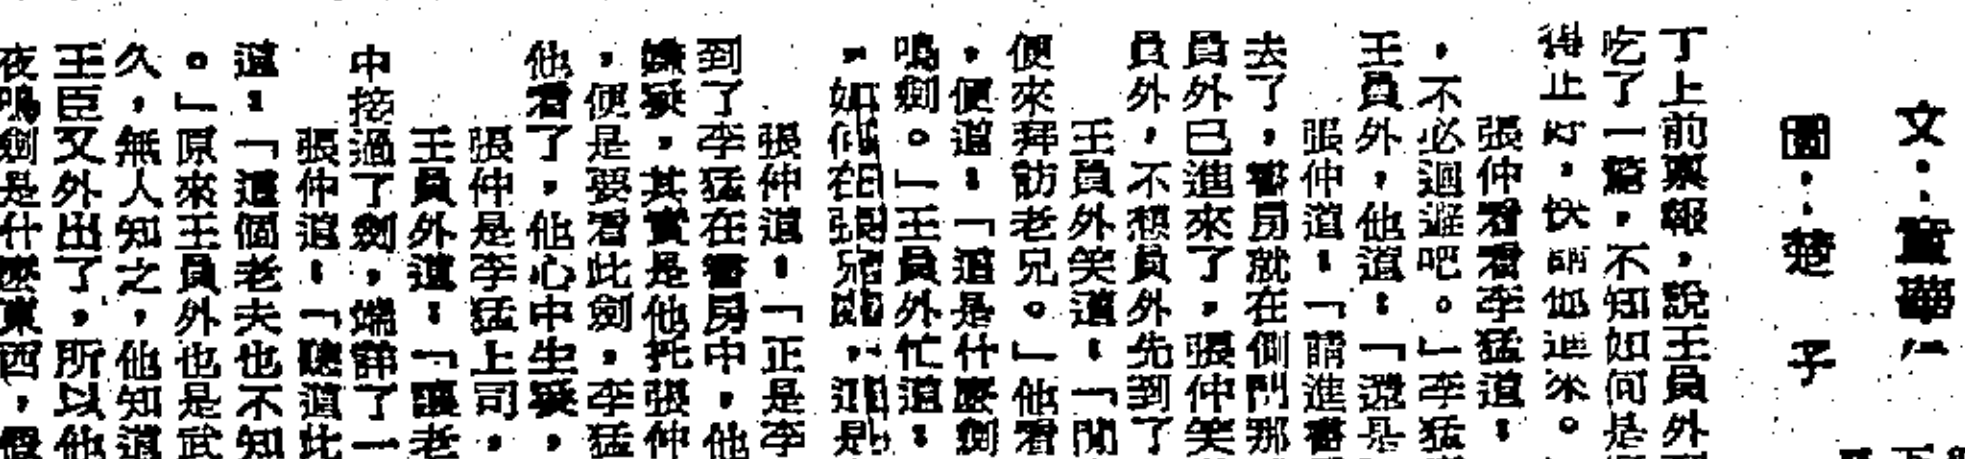 文：
圖：楚子
丁上前稟報，說王員外
吃了一驚，不知如何是
得止步，快請他進來。
張仲看看李猛道：
，不必迴避吧。」李猛
王員外，他道：「還是
張仲道：「請進書
去了，書房就在側門那
員外已進來了，張仲笑
員外，不想員外先到了
王員外笑道：「聞
便來拜訪老兄。」他看
，便道：「這是什麼劍
鳴劍。」王員外忙道：
張仲道：「正是李
到了李猛在書房中，他
嫌疑，其實是他托張仲
，便是要看此劍，李猛
他看了，他心中生疑，
張仲是李猛上司，
王員外道：「讓老
中接過了劍，端詳了一
張仲道：「聽道此
道：「這個老夫也不知
。」原來王員外也是武
久，無人知之，他知道
王臣又外出了，所以他
夜鳴劍是什麼東西，假